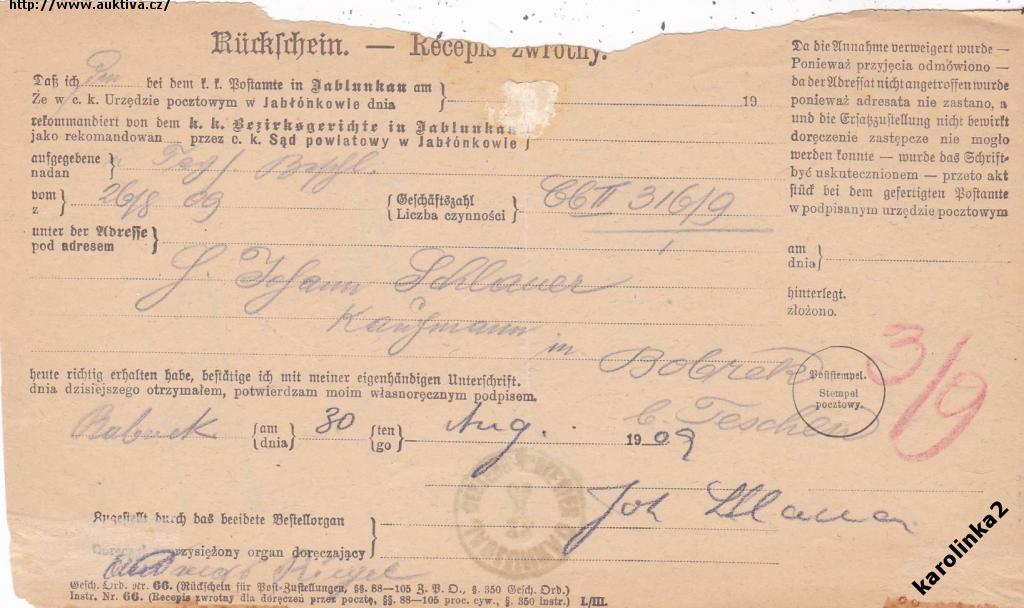 http://www.auktiva.cz/
Rückschein. — Recepis zwrotny.
Daß ich bei dem k. k. Postamte in Jablunkau am
Że w c. k. Urzędzie pocztowym w Jabłónkowie dnia 19
rekommandiert von dem k. k. Bezirksgerichte in Jablunkau
jako rekomandowan przez c. k. Sąd powiatowy w Jabłónkowie
aufgegebene
nadan
vom
z 26/8 09 Geschäftszahl
Liczba czynności Cb II 316/9
unter der Adresse
pod adresem
H. Johann Schlauer
Kaufmann
in Bobrek
b. Teschen
heute richtig erhalten habe, bestätige ich mit meiner eigenhändigen Unterschrift.
dnia dzisiejszego otrzymałem, potwierdzam moim własnoręcznym podpisem.
am
dnia 30 ten
go Aug. 1909
Joh
Zugestellt durch das beeidete Bestellorgan
przysiężony organ doręczający
Gesch. Ord. Nr. 66. (Rückschein für Post-Zustellungen, §§. 88—105 Z. P. O., §. 350 Gesch. Ord.)
Instr. Nr. 66. (Recepis zwrotny dla doręczeń przez pocztę, §§. 88—105 proc. cyw., §. 350 instr.) I./III.
Da die Annahme verweigert wurde —
Ponieważ przyjęcia odmówiono —
da der Adressat nicht angetroffen wurde
ponieważ adresata nie zastano, a
und die Ersatzzustellung nicht bewirkt
doręczenie zastępcze nie mogło
werden konnte — wurde das Schrift-
być uskutecznionem — przeto akt
stück bei dem gefertigten Postamte
w podpisanym urzędzie pocztowym
am
dnia
hinterlegt.
złożono.
Poststempel.
Stempel
pocztowy.
3/9
karolinka2